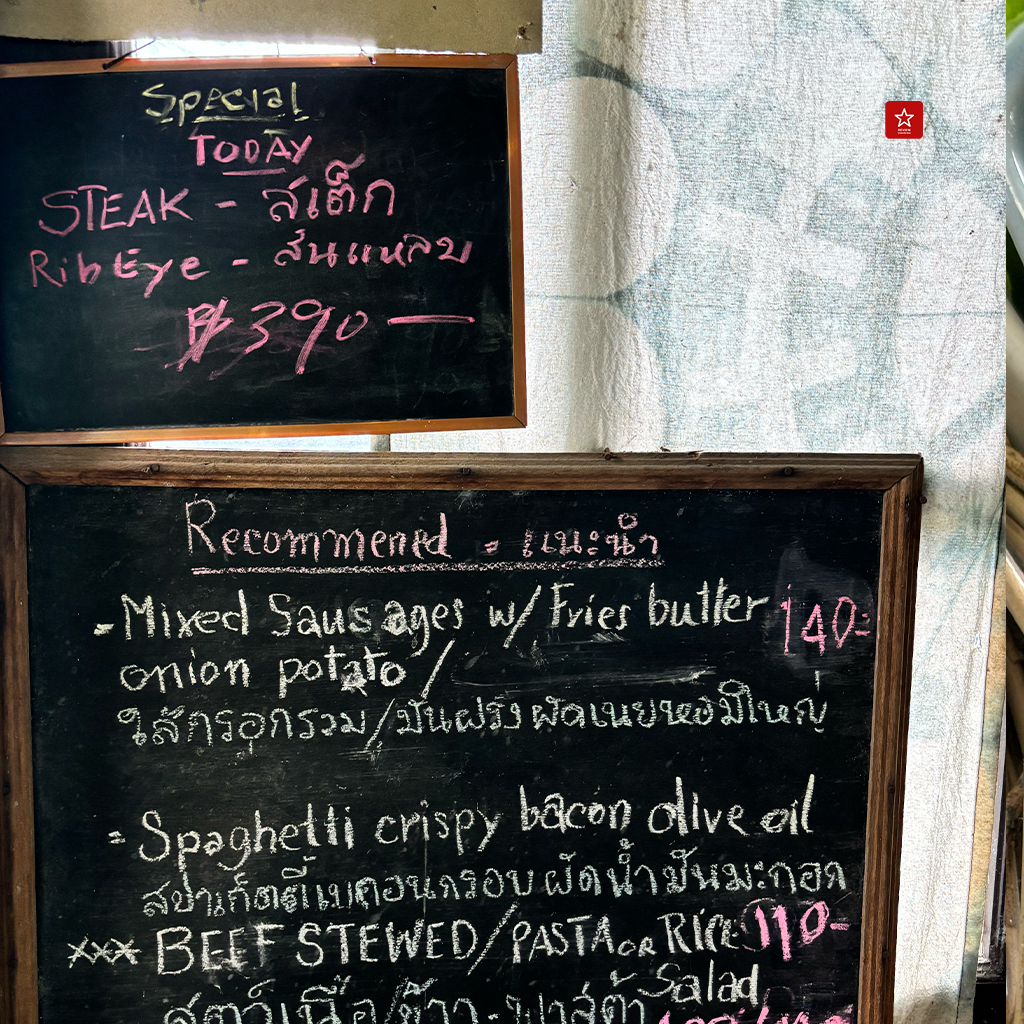 Special
TODAY
STEAK - สเต็ก
RibEye - สันแหลบ
฿390 —
Recommened - แนะนำ
- Mixed Sausages w/ Fries butter 140-
onion potato /
ใส้กรอกรวม/มันฝรั่งผัดเนยหอมใหญ่
- Spaghetti crispy bacon olive oil
สปาเก็ตตี้เบคอนกรอบผัดน้ำมันมะกอก
xxx BEEF STEWED/PASTA OR Rice 110-
Salad
สตูว์เนื้อ/ข้าว - พาสต้า
REVIEW